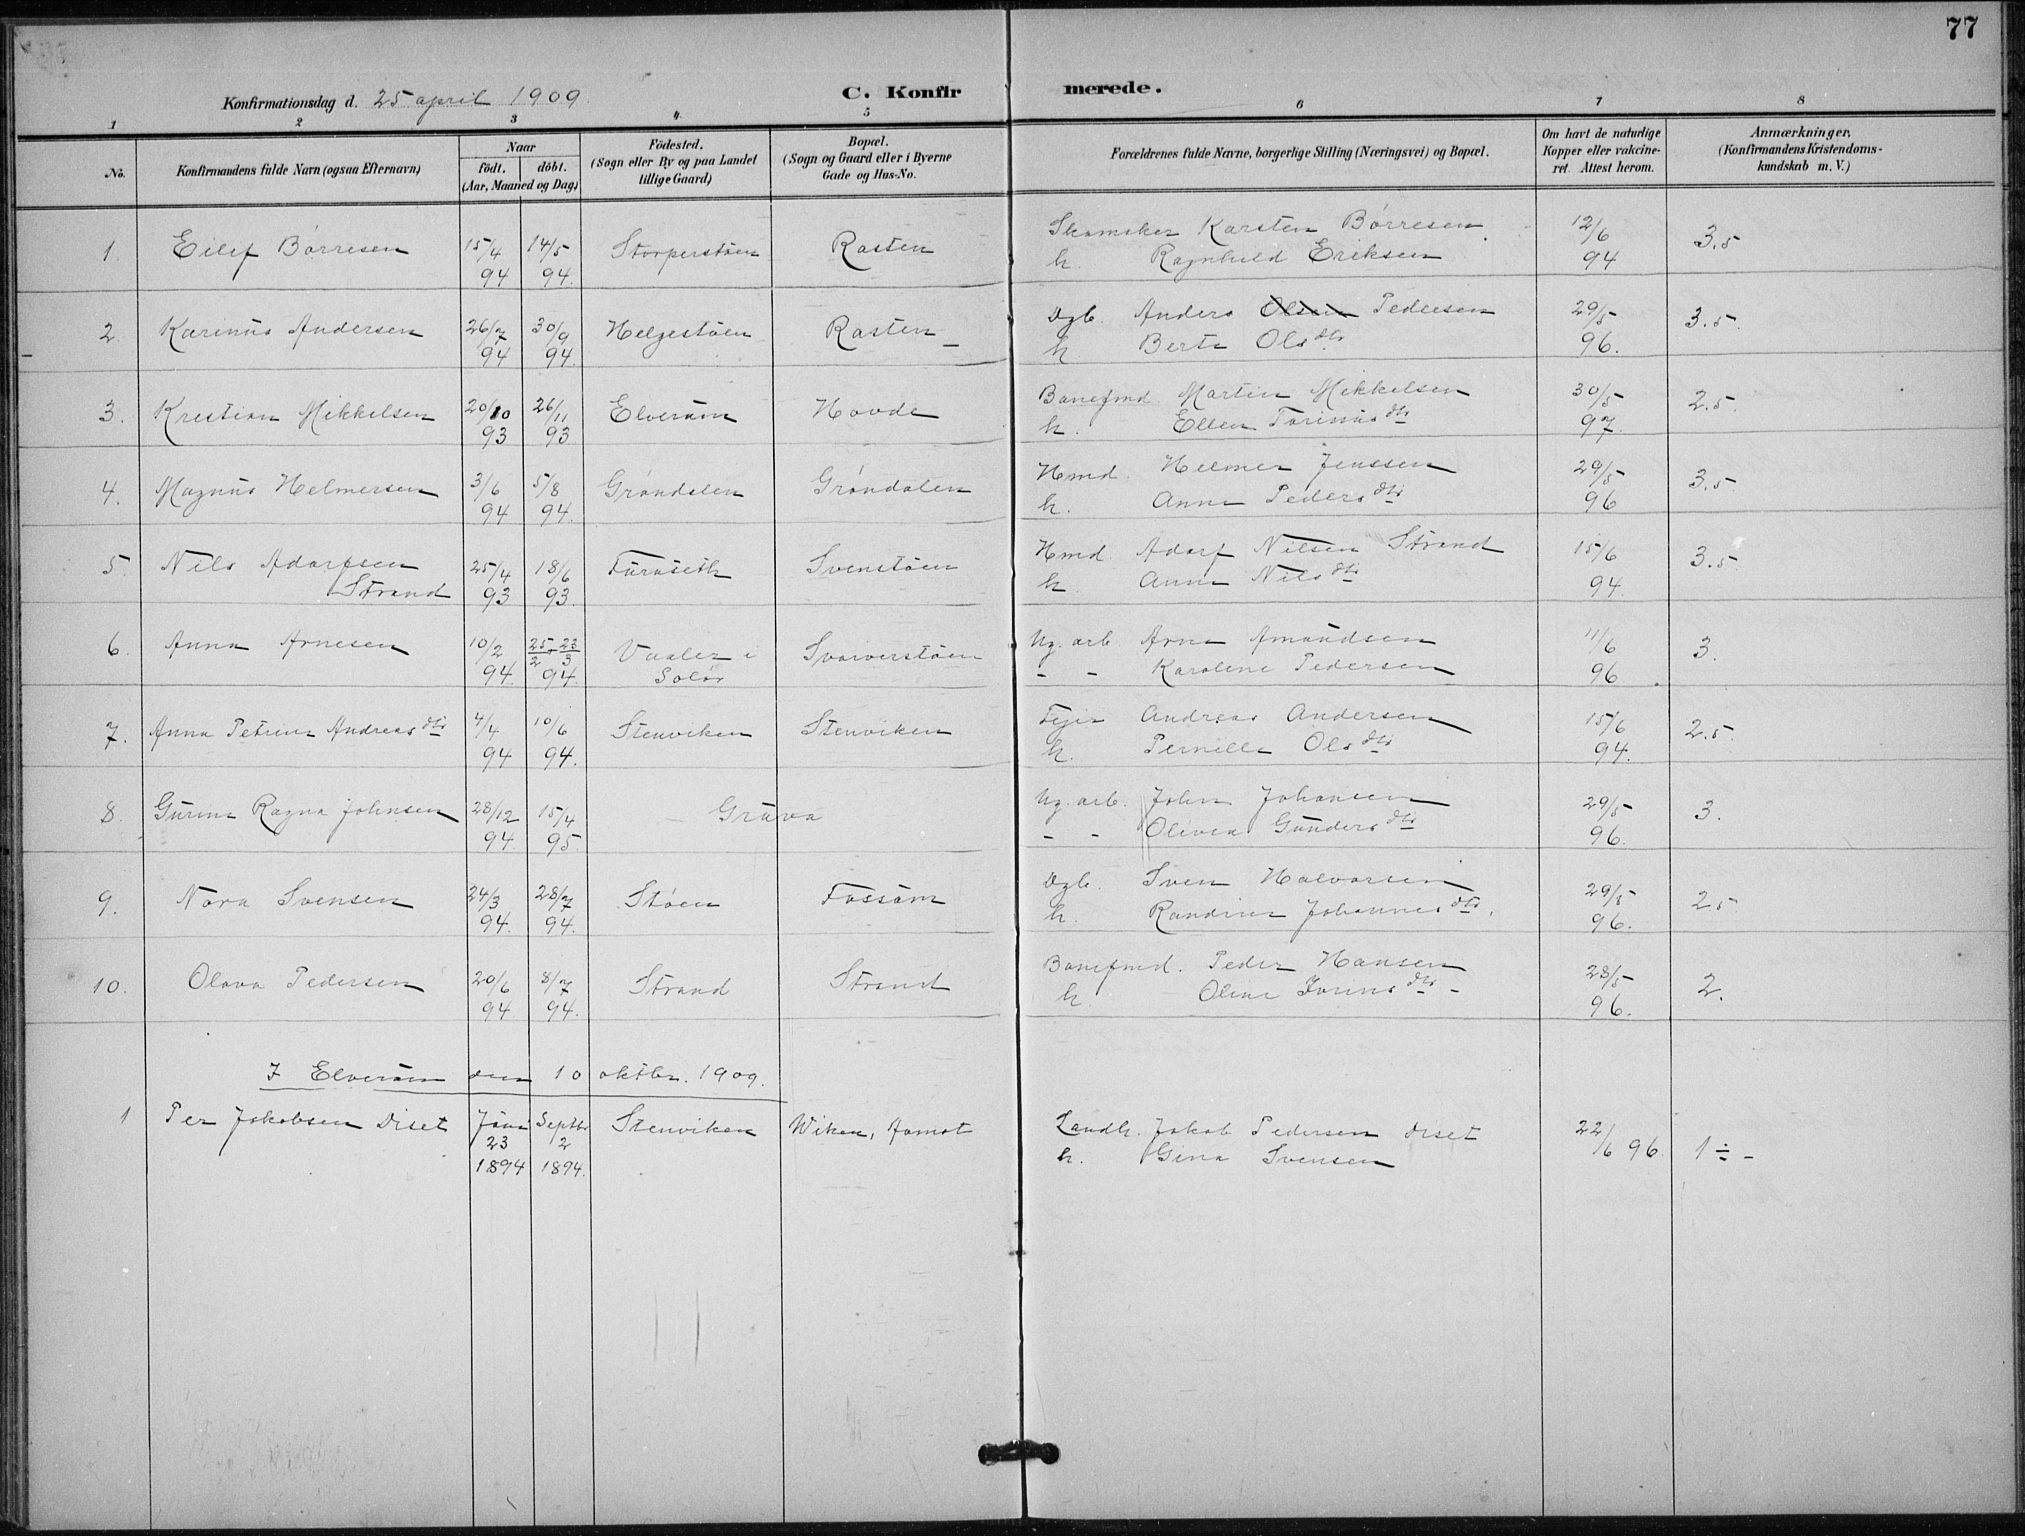 77
Konfirmationsdag d. 25 april 1909.
C. Konfirmerede.
1 2 3 4. 5 6 7 8
No.
Konfirmandens fulde Navn (ogsaa Efternavn)
Naar
födt. döbt.
(Aar, Maaned og Dag)
Födested.
(Sogn eller By og paa Landet
tillige Gaard)
Bopæl.
(Sogn og Gaard eller i Byerne
Gade og Hus-No.
Forældrenes fulde Navne, borgerlige Stilling (Næringsvei) og Bopæl.
Om havt de naturlige
Kopper eller vakcine-
ret. Attest herom.
Anmærkninger,
(Konfirmandens Kristendoms-
kundskab m. V.)
1. Eilef Börresen 15/4 14/5 Storperstöen Rasten Skomaker Karsten Börresen 12/6 3.5
94 94. h. Ragnhild Eriksen 94
2 Karinus Andersen 26/7 30/9 Helgestöen Rasten Dgb. Anders Olsen Pedersen 29/5 3.5.
94 94. h Berte Ols dtr 96.
3. Kristian Mikkelsen 20/10 26/11 Elverum Hovde Banefmd. Martin Mikkelsen 30/5 2.5.
93 93 h. Ellen Torinus dtr 97.
4. Magnus Helmersen 3/6 5/8 Gröndalen Gröndalen Hmd. Helmer Jenssen 29/5 3.5.
94 94. h. Anne Peders dtr 96
5. Nils Adorfsen 25/4 18/6 Furuseth Svenstöen Hmd Adorf Nilsen Strand 15/6 3.5
Strand 93 93. h Anne Nils dtr 94.
6. Anna Arnesen 10/2 25/2 - 23/3 Vaaler i Svarverstöen Ug. arb. Arne Amundsen 11/6 3.
94. 94. Solör - - Karoline Pedersen 96
7. Anna Petrine Andreas dtr 4/4 10/6 Stenviken Stenviken Andreas Andersen 15/6 2.5.
94 94. h. Pernille Ols dtr 94.
8. Gurine Ragna Johnsen 28/12 15/4 Gruva Ug. arb. John Johansen 29/5 3.
94. 95. - - Olivea Gunders dtr 96.
9. Nora Svensen 24/3 28/7 Stöen Fossum Dgb. Sven Halvorsen 29/5 2.5
94. 94. h. Randine Johannes dtr. 96.
10. Olava Pedersen 20/6 8/7 Strand Strand Banefmd. Peder Hansen 28/5 2.
94 94. h. Oline dtr - 96.
I Elverum den 10 oktbr. 1909.
1 Per Jakobsen Diset Juni Septbr Stenviken Wiken, Aamot Landh. Jakob Pedersen Diset 22/6 96. 1 ÷ -
23 2 h. Gina Svensen
1894 1894.